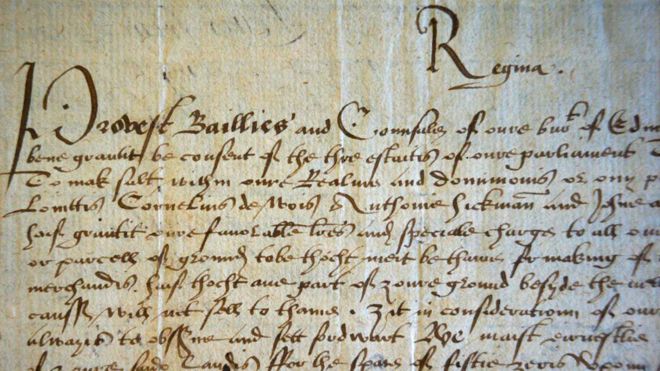 Regina.
Provest Baillies and Counsale of oure burt of Edin
bene grantit be consent of the thre estaitis of oure parliament
To mak salt within oure Realme and dominionis or ony p
Lomttis Cornelius de Vois Anthone Hickman and Johne
hase grantit oure favorable lres and speciale charges to all our
or parcell of ground to be thocht meit be thame for making of
merchandis hase thocht ane part of zoure ground besyde the
will not sell to thame. Zit in consideratioun of our
alwayis to and sett fordwart We maist ernestlie
of zoure said Landis ffor the space of fiftie zeris upoun